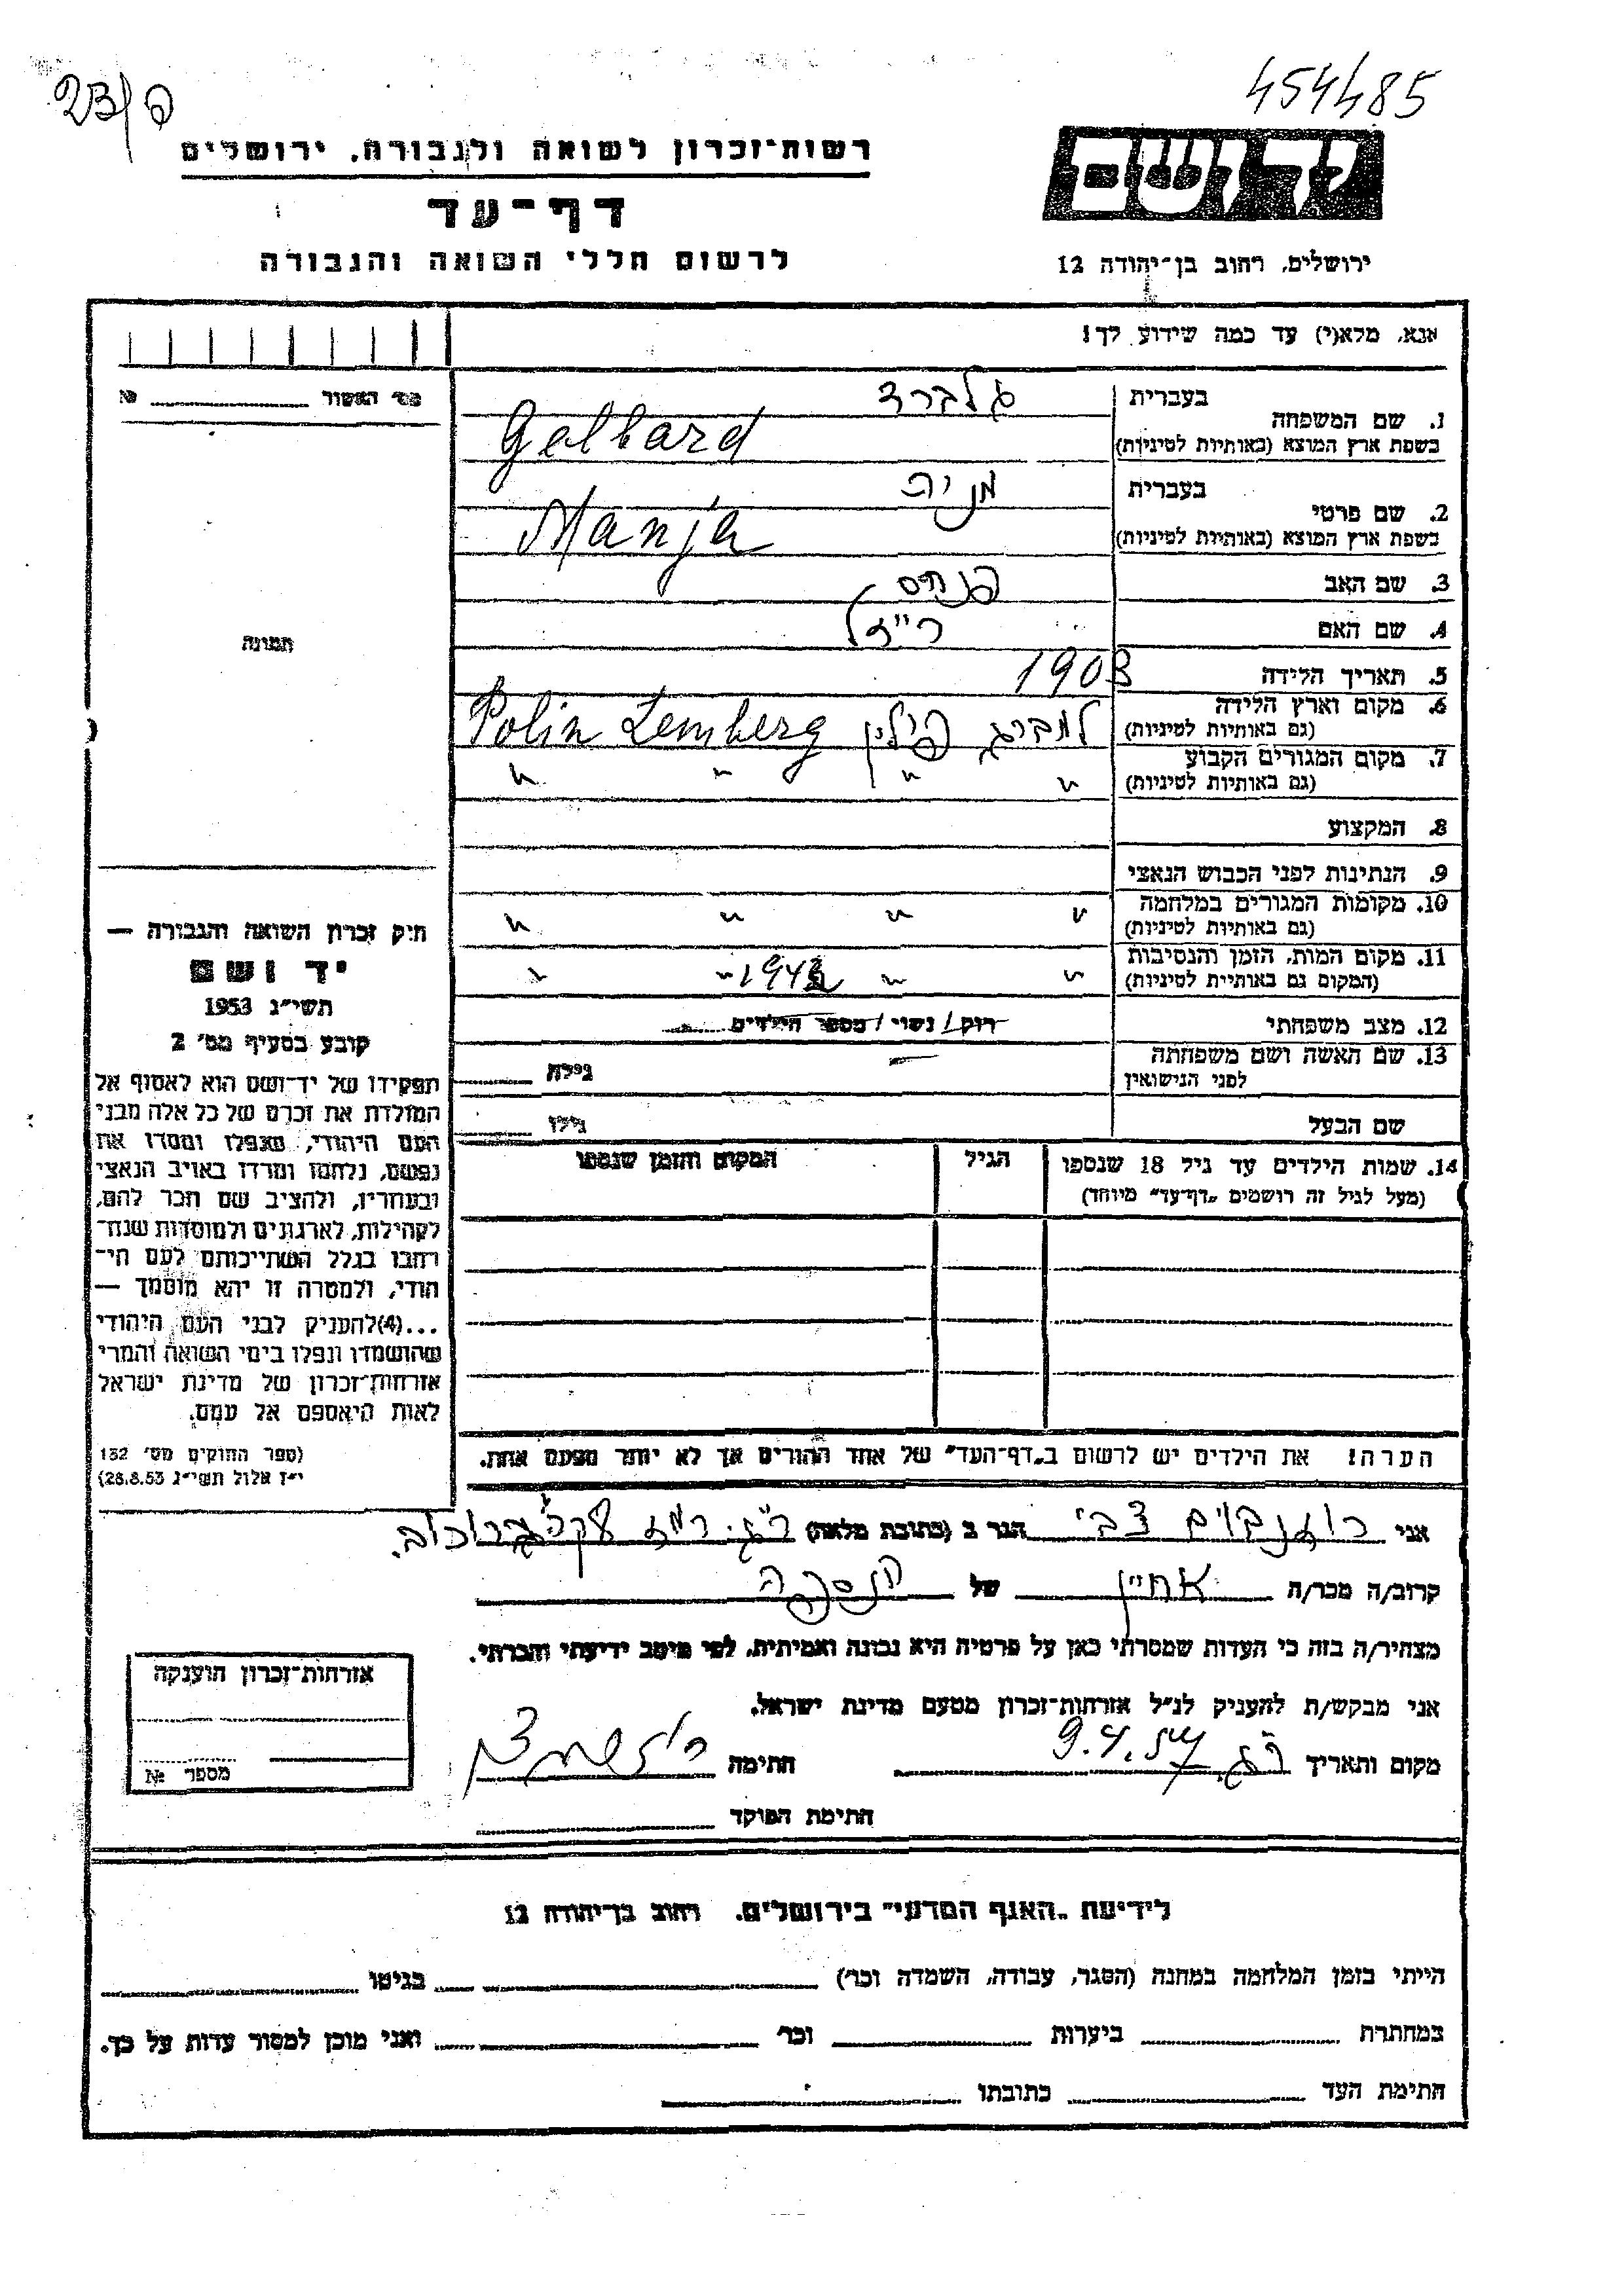 454485
23/ף
יד ושם
רשות-זכרון לשואה ולגבורה, ירושלים
דף-עד
לרשום חללי השואה והגבורה
ירושלים, רחוב בן-יהודה 12
אנא, מלא(י) עד כמה שידוע לך!
מס' האשור №
תמונה
1. שם המשפחה
בעברית גלברד
בשפת ארץ המוצא (באותיות לטיניות) Gelbard
2. שם פרטי
בעברית מניה
בשפת ארץ המוצא (באותיות לטיניות) Manja
3. שם האב פנחס
4. שם האם רייזל
5. תאריך הלידה 1903
6. מקום וארץ הלידה
(גם באותיות לטיניות) למברג פולין Polin Lemberg
7. מקום המגורים הקבוע
(גם באותיות לטיניות) " " " "
8. המקצוע
9. הנתינות לפני הכבוש הנאצי
10. מקומות המגורים במלחמה
(גם באותיות לטיניות) " " " "
11. מקום המות, הזמן והנסיבות
(המקום גם באותיות לטיניות) " " " "
12. מצב משפחתי רוק/נשוי/מספר הילדים
13. שם האשה ושם משפחתה
לפני הנישואין גילה
שם הבעל גילו
14. שמות הילדים עד גיל 18 שנספו
(מעל לגיל זה רושמים „דף-עד" מיוחד)
הגיל
המקום והזמן שנספו
הערה! את הילדים יש לרשום ב„דף-העד" של אחד ההורים אך לא יותר מפעם אחת.
חוק זכרון השואה והגבורה —
יד ושם
תשי"ג 1953
קובע בסעיף מס' 2
תפקידו של יד-ושם הוא לאסוף אל
המולדת את זכרם של כל אלה מבני
העם היהודי, שנפלו ומסרו את
נפשם, נלחמו ומרדו באויב הנאצי
ובעוזריו, ולהציב שם וזכר להם,
לקהילות, לארגונים ולמוסדות שנח-
רבו בגלל השתייכותם לעם הי-
הודי, ולמטרה זו יהא מוסמך —
...(4) להעניק לבני העם היהודי
שהושמדו ונפלו בימי השואה והמרי
אזרחות-זכרון של מדינת ישראל
לאות היאספם אל עמם.
(ספר החוקים מס' 132
י"ז אלול תשי"ג 28.8.53)
אני רוזנבוים צבי הגר ב (כתובת מלאה) ר"ג.
קרוב/ה מכר/ה אחיין של הנספה
מצהיר/ה בזה כי העדות שמסרתי כאן על פרטיה היא נכונה ואמיתית, לפי מיטב ידיעתי והכרתי.
אני מבקש/ת להעניק לנ"ל אזרחות-זכרון מטעם מדינת ישראל.
מקום ותאריך ר"ג. 9.4. חתימה
חתימת הפוקד
אזרחות-זכרון הוענקה
מספר №
לידיעת „האגף המדעי" בירושלים, רחוב בן-יהודה 12
הייתי בזמן המלחמה במחנה (הסגר, עבודה, השמדה וכו') בגיטו
במחתרת ביערות וכו' ואני מוכן למסור עדות על כך.
חתימת העד כתובתו